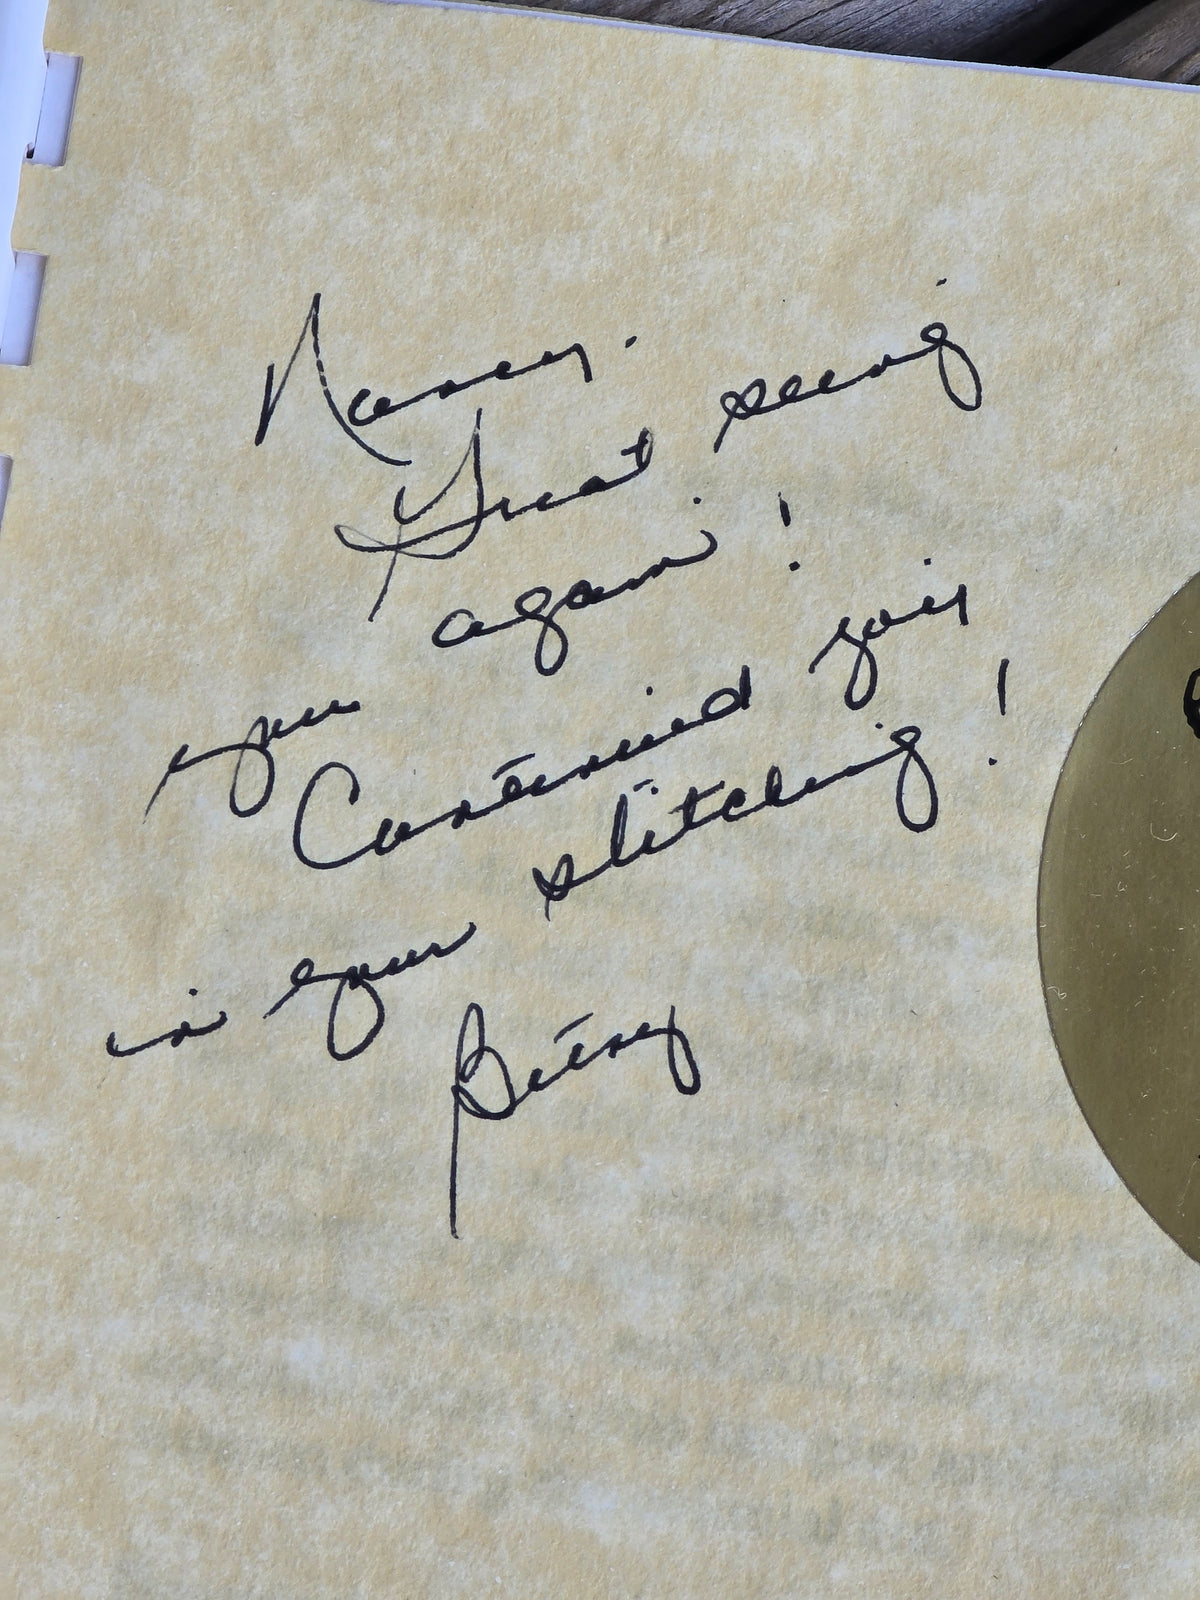 Nancy.
Great seeing
you again!
Continued joy
in your stitching!
Betsy